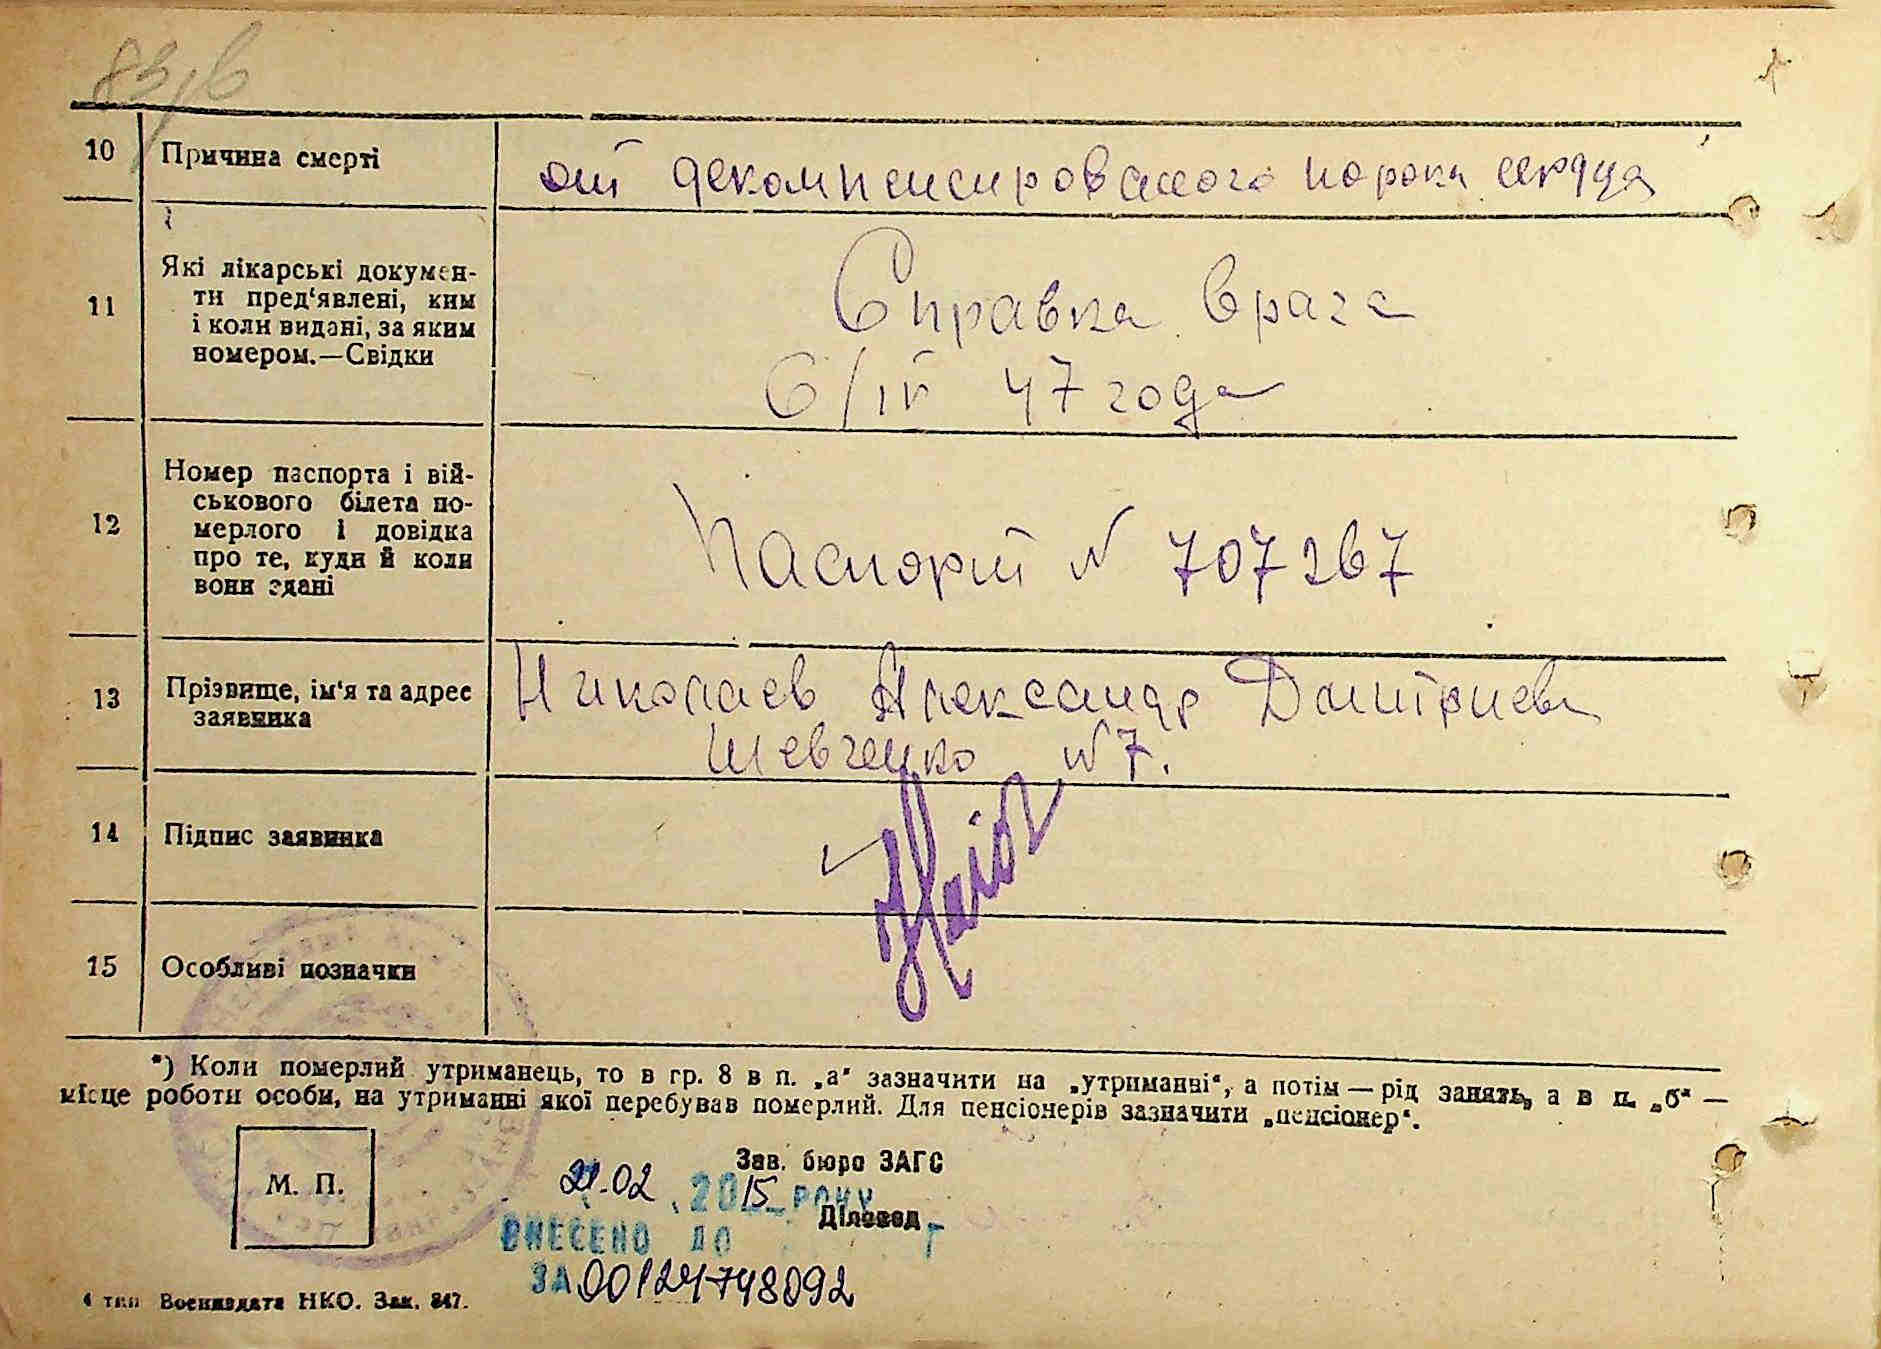 83/в
10 Причина смерті
от декомпенсированого порока сердца
11 Які лікарські докумен-
ти пред'явлені, ким
і коли видані, за яким
номером.—Свідки
Справка врача
6/IV 47 года
12 Номер паспорта і вій-
ськового білета по-
мерлого і довідка
про те, куди й коли
вони здані
Паспорт N 707267
13 Прізвище, ім'я та адрес
заявника
Николаев Александр Дмитриев
Шевченко N 7.
14 Підпис заявника
15 Особливі позначки
*) Коли померлий утриманець, то в гр. 8 в п. „а" зазначити на „утриманні", а потім — рід занять, а в п. „б" —
місце роботи особи, на утриманні якої перебував померлий. Для пенсіонерів зазначити „пенсіонер".
М. П.
Зав. бюро ЗАГС
21.02 2015 РОКУ
Діловод
ВНЕСЕНО ДО
ЗА 00124748092
4 тип Воениздата НКО. Зак. 847.